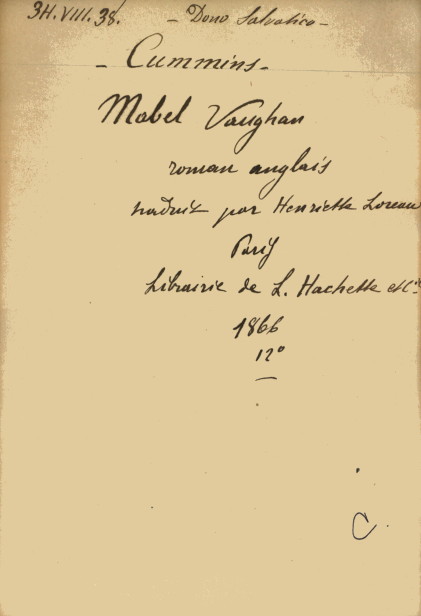 3H.VIII.38. - Dono Salvatico -
- Cummins -
Mabel Vaughan
roman anglais
traduit par Henriette Loreau
Paris
Librairie de L. Hachette et Cie
1866
12º
C.